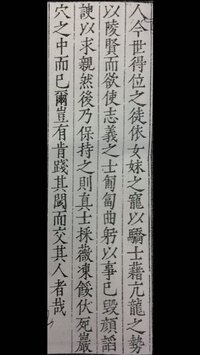 人今世得位之徒依女妹之寵以驕士藉亢龍之勢
以陵賢而欲使志義之士匍匐曲躬以事己毀顏諂
諛以求親然後乃保持之則貞士採薇凍餒伏死巖
穴之中而已爾豈有肯踐其闕而交其人者哉